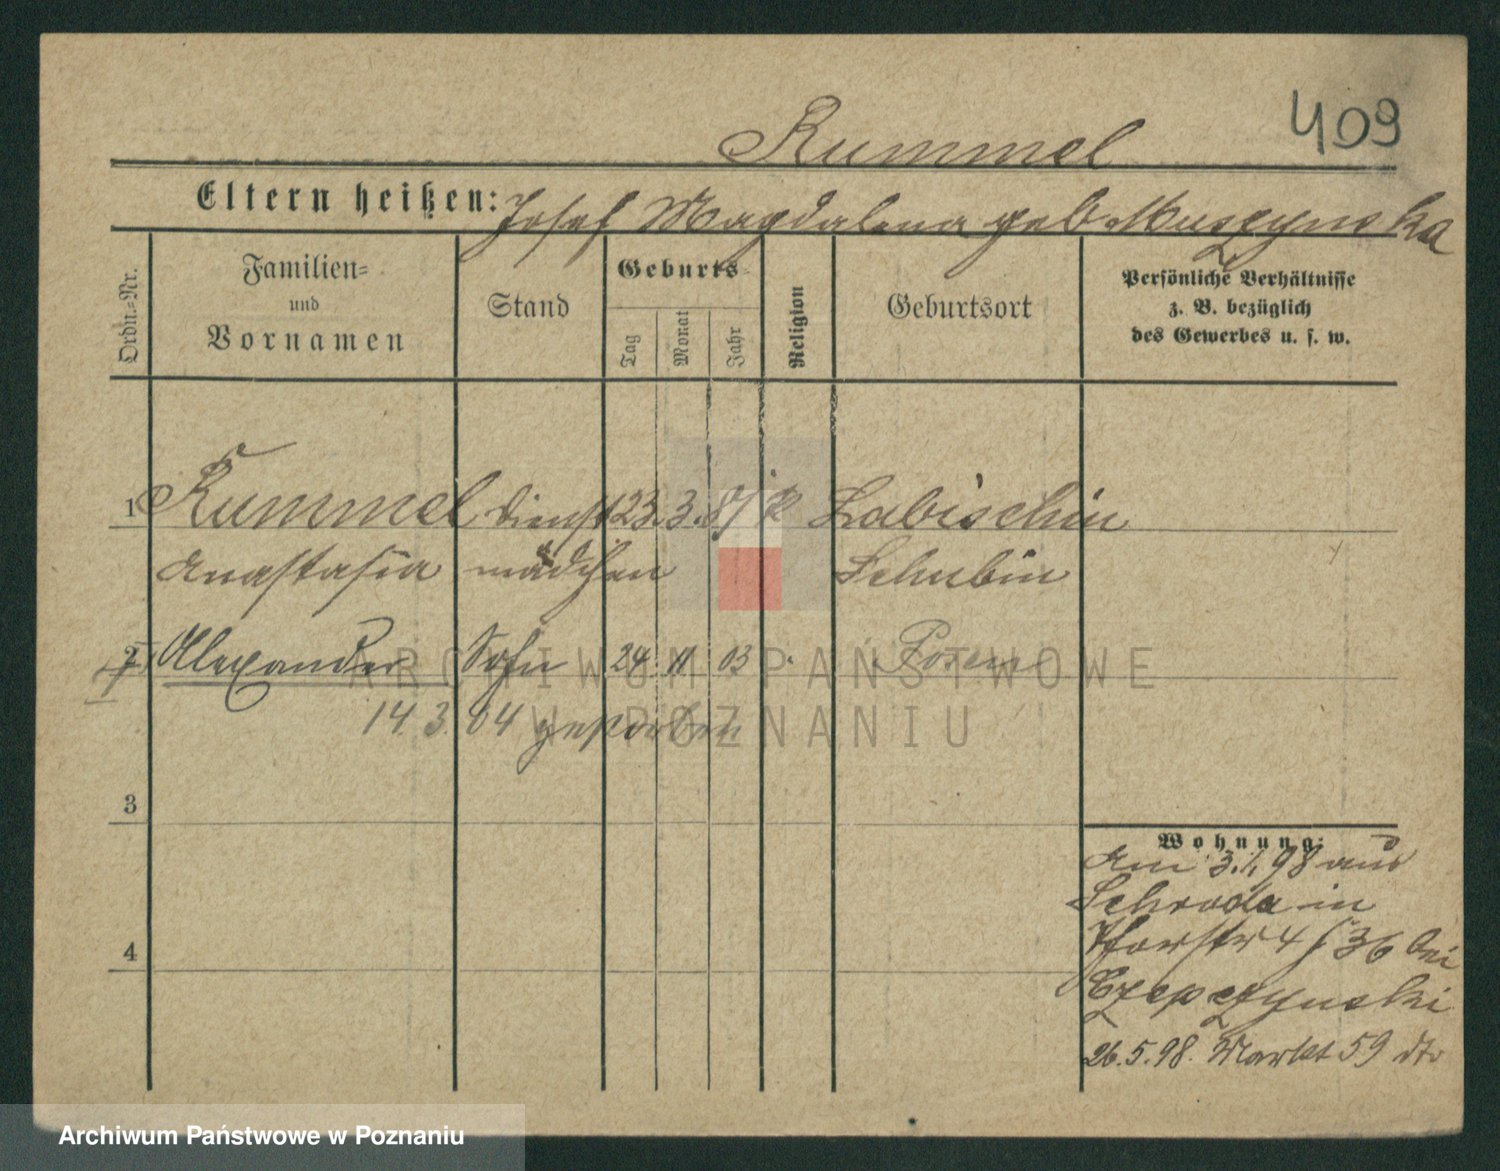 409
Rummel
Eltern heißen: Josef Magdalena geb Muszynska
Ordn.=Nr.
Familien=
und
Vornamen
Stand
Geburts=
Tag
Monat
Jahr
Religion
Geburtsort
Persönliche Verhältnisse
z. B. bezüglich
des Gewerbes u. s. w.
1 Rummel Dienst 23. 3. 81 k Labischin
Anastasia mädchen Schubin
2 Alexander Sohn 24. 11 03 " Posen
14 3 04 gestorben
3
4
Wohnung:
Am 3.1.98 aus
Schroda in
36 bei
Czepczynski
26.5.98. Markt 59 dto
ARCHIWUM PAŃSTWOWE
W POZNANIU
Archiwum Państwowe w Poznaniu